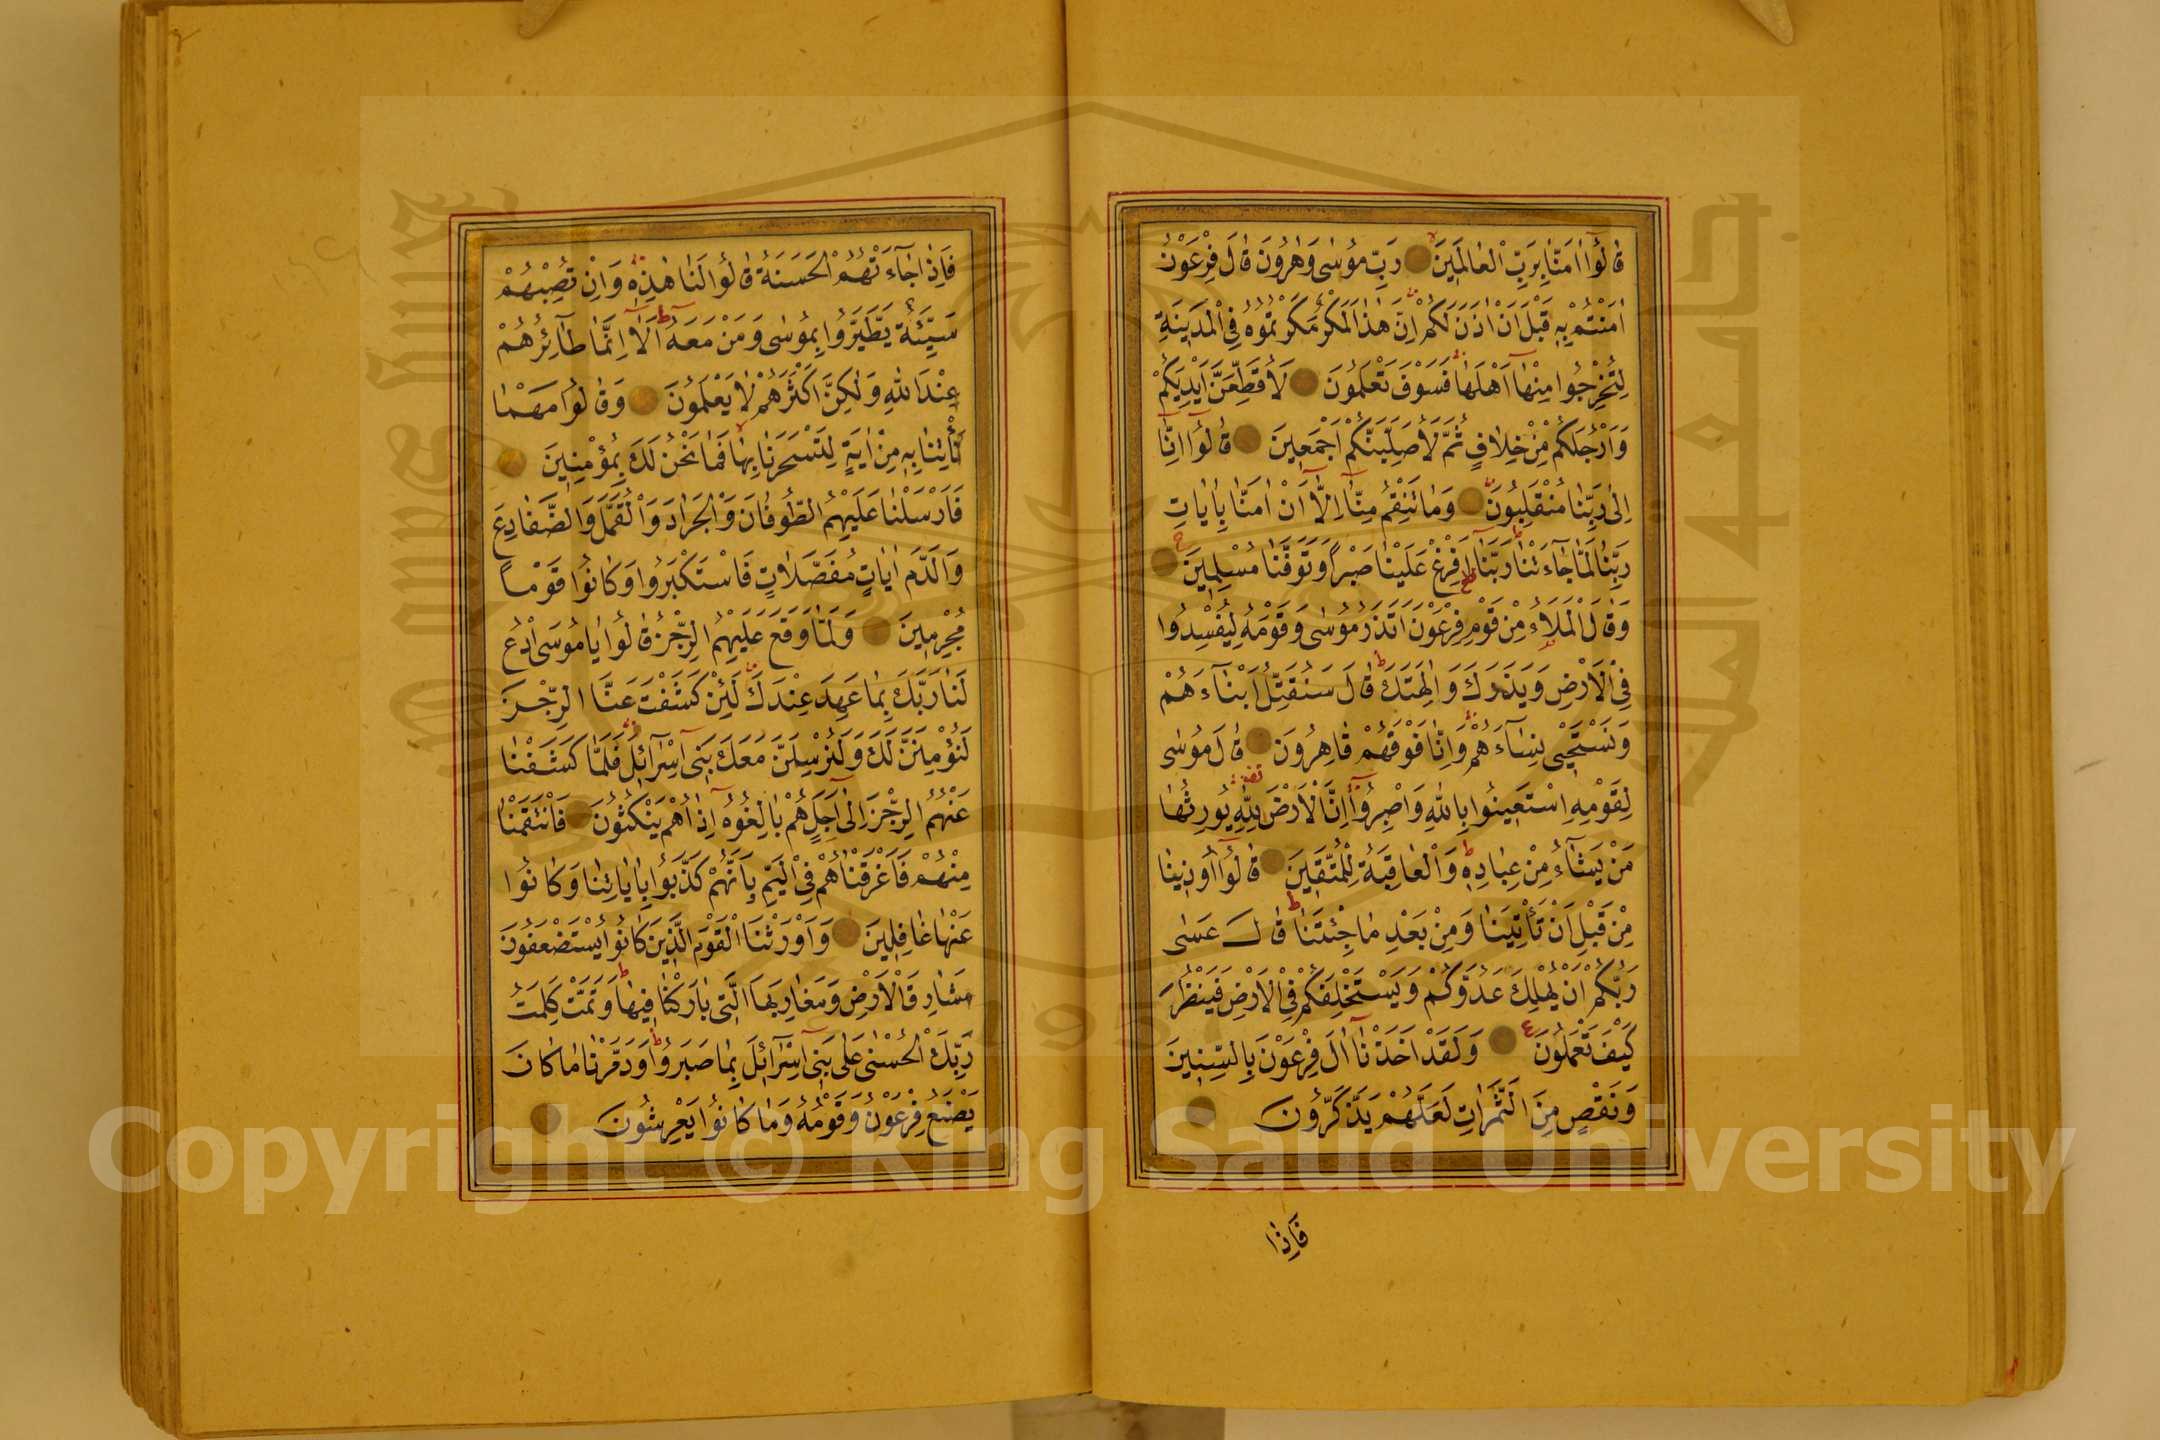 قَالُوٓا اٰمَنَّا بِرَبِّ الْعَالَمِينَ رَبِّ مُوسٰى وَهٰرُونَ قَالَ فِرْعَوْنُ
اٰمَنْتُمْ بِهٖ قَبْلَ اَنْ اٰذَنَ لَكُمْ اِنَّ هٰذَا لَمَكْرٌ مَكَرْتُمُوهُ فِى الْمَدِينَةِ
لِتُخْرِجُوا مِنْهَآ اَهْلَهَا فَسَوْفَ تَعْلَمُونَ لَاُقَطِّعَنَّ اَيْدِيَكُمْ
وَاَرْجُلَكُمْ مِنْ خِلَافٍ ثُمَّ لَاُصَلِّبَنَّكُمْ اَجْمَعِينَ قَالُوٓا اِنَّا
اِلٰى رَبِّنَا مُنْقَلِبُونَ وَمَا تَنْقِمُ مِنَّآ اِلَّآ اَنْ اٰمَنَّا بِاٰيَاتِ
رَبِّنَا لَمَّا جَآءَتْنَا رَبَّنَآ اَفْرِغْ عَلَيْنَا صَبْرًا وَتَوَفَّنَا مُسْلِمِينَ
وَقَالَ الْمَلَاُ مِنْ قَوْمِ فِرْعَوْنَ اَتَذَرُ مُوسٰى وَقَوْمَهُ لِيُفْسِدُوا
فِى الْاَرْضِ وَيَذَرَكَ وَاٰلِهَتَكَ قَالَ سَنُقَتِّلُ اَبْنَآءَهُمْ
وَنَسْتَحْيٖى نِسَآءَهُمْ وَاِنَّا فَوْقَهُمْ قَاهِرُونَ قَالَ مُوسٰى
لِقَوْمِهِ اسْتَعِينُوا بِاللّٰهِ وَاصْبِرُوٓا اِنَّ الْاَرْضَ لِلّٰهِ يُورِثُهَا
مَنْ يَشَآءُ مِنْ عِبَادِهٖ وَالْعَاقِبَةُ لِلْمُتَّقِينَ قَالُوٓا اُوذِينَا
مِنْ قَبْلِ اَنْ تَأْتِيَنَا وَمِنْ بَعْدِ مَا جِئْتَنَا قَالَ عَسٰى
رَبُّكُمْ اَنْ يُهْلِكَ عَدُوَّكُمْ وَيَسْتَخْلِفَكُمْ فِى الْاَرْضِ فَيَنْظُرَ
كَيْفَ تَعْمَلُونَ وَلَقَدْ اَخَذْنَآ اٰلَ فِرْعَوْنَ بِالسِّنِينَ
وَنَقْصٍ مِنَ الثَّمَرَاتِ لَعَلَّهُمْ يَذَّكَّرُونَ
فَاِذَا
فَاِذَا جَآءَتْهُمُ الْحَسَنَةُ قَالُوا لَنَا هٰذِهٖ وَاِنْ تُصِبْهُمْ
سَيِّئَةٌ يَطَّيَّرُوا بِمُوسٰى وَمَنْ مَعَهُ اَلَآ اِنَّمَا طَآئِرُهُمْ
عِنْدَ اللّٰهِ وَلٰكِنَّ اَكْثَرَهُمْ لَا يَعْلَمُونَ وَقَالُوا مَهْمَا
تَأْتِنَا بِهٖ مِنْ اٰيَةٍ لِتَسْحَرَنَا بِهَا فَمَا نَحْنُ لَكَ بِمُؤْمِنِينَ
فَاَرْسَلْنَا عَلَيْهِمُ الطُّوفَانَ وَالْجَرَادَ وَالْقُمَّلَ وَالضَّفَادِعَ
وَالدَّمَ اٰيَاتٍ مُفَصَّلَاتٍ فَاسْتَكْبَرُوا وَكَانُوا قَوْمًا
مُجْرِمِينَ وَلَمَّا وَقَعَ عَلَيْهِمُ الرِّجْزُ قَالُوا يَامُوسَى ادْعُ
لَنَا رَبَّكَ بِمَا عَهِدَ عِنْدَكَ لَئِنْ كَشَفْتَ عَنَّا الرِّجْزَ
لَنُؤْمِنَنَّ لَكَ وَلَنُرْسِلَنَّ مَعَكَ بَنِىٓ اِسْرَآئِلَ فَلَمَّا كَشَفْنَا
عَنْهُمُ الرِّجْزَ اِلٰٓى اَجَلٍ هُمْ بَالِغُوهُ اِذَا هُمْ يَنْكُثُونَ فَانْتَقَمْنَا
مِنْهُمْ فَاَغْرَقْنَاهُمْ فِى الْيَمِّ بِاَنَّهُمْ كَذَّبُوا بِاٰيَاتِنَا وَكَانُوا
عَنْهَا غَافِلِينَ وَاَوْرَثْنَا الْقَوْمَ الَّذِينَ كَانُوا يُسْتَضْعَفُونَ
مَشَارِقَ الْاَرْضِ وَمَغَارِبَهَا الَّتِى بَارَكْنَا فِيهَا وَتَمَّتْ كَلِمَتُ
رَبِّكَ الْحُسْنٰى عَلٰى بَنِىٓ اِسْرَآئِلَ بِمَا صَبَرُوا وَدَمَّرْنَا مَا كَانَ
يَصْنَعُ فِرْعَوْنُ وَقَوْمُهُ وَمَا كَانُوا يَعْرِشُونَ
Copyright © King Saud University
1957